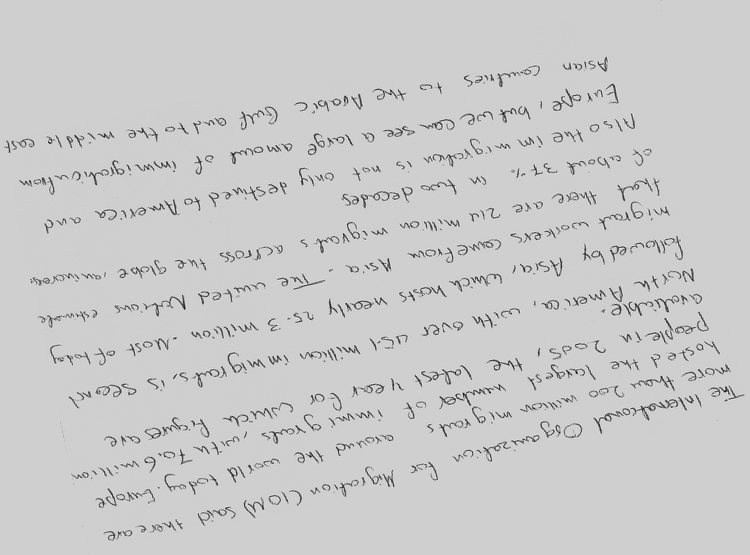 The International Organization for Migration (IOM) said there are
more than 200 million migrants around the world today. Europe
hosted the largest number of immigrants, with 70.6 million
people in 2005, the latest year for which figures are
available.
North America, with over 45.1 million immigrants, is second
followed by Asia, which hosts nearly 25.3 million. Most of today
migrant workers come from Asia. The united Nations estimate
that there are 214 million migrants across the globe, an increase
of about 37% in two decades
Also the immigration is not only destined to America and
Europe, but we can see a large amount of immigration from
Asian countries to the Arabic Gulf and to the middle east